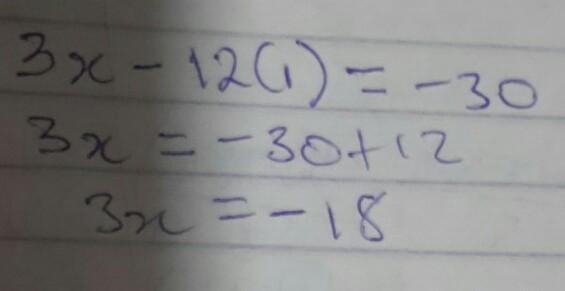 3x - 12(1) = -30
3x = -30+12
3x = -18